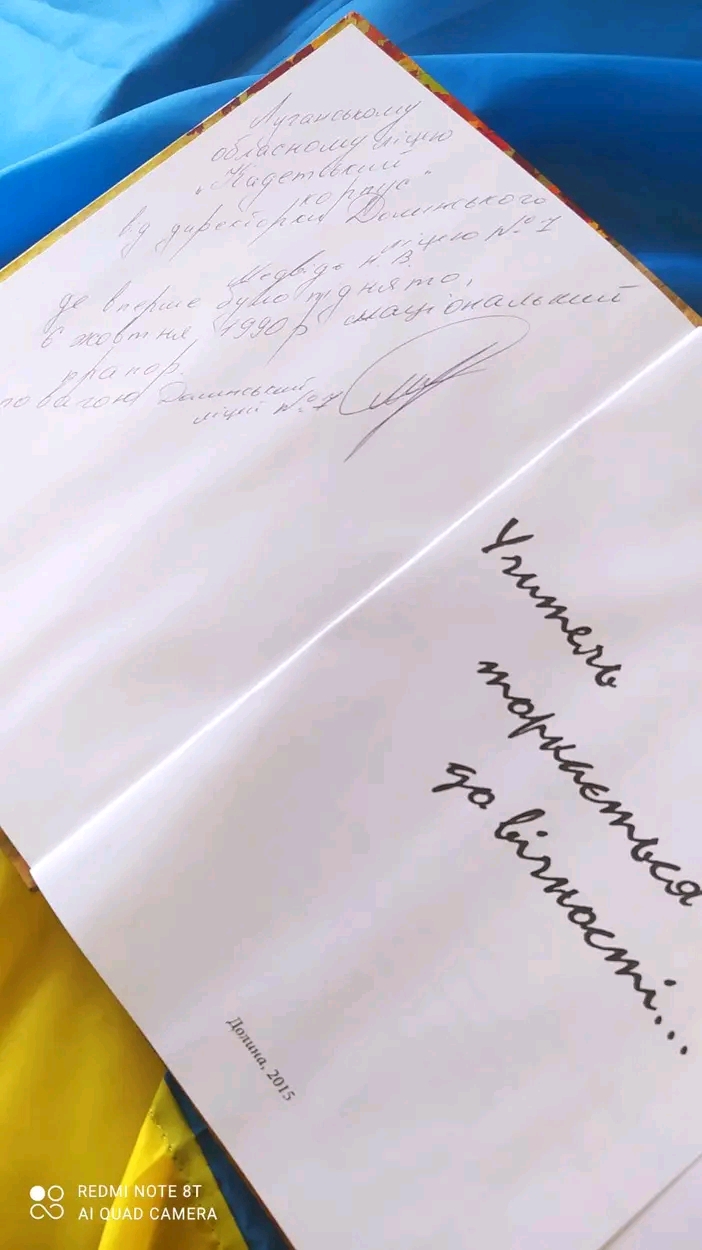 Луганському
обласному ліцею
„Кадетський
корпус"
від директорки Долинського
ліцею №1
Медвідь Н. В.
де вперше було піднято,
6 жовтня 1990р національний
прапор.
повагою Долинський
ліцей №1
Учитель
торкається
до вічності...
Долина, 2015
REDMI NOTE 8T
AI QUAD CAMERA